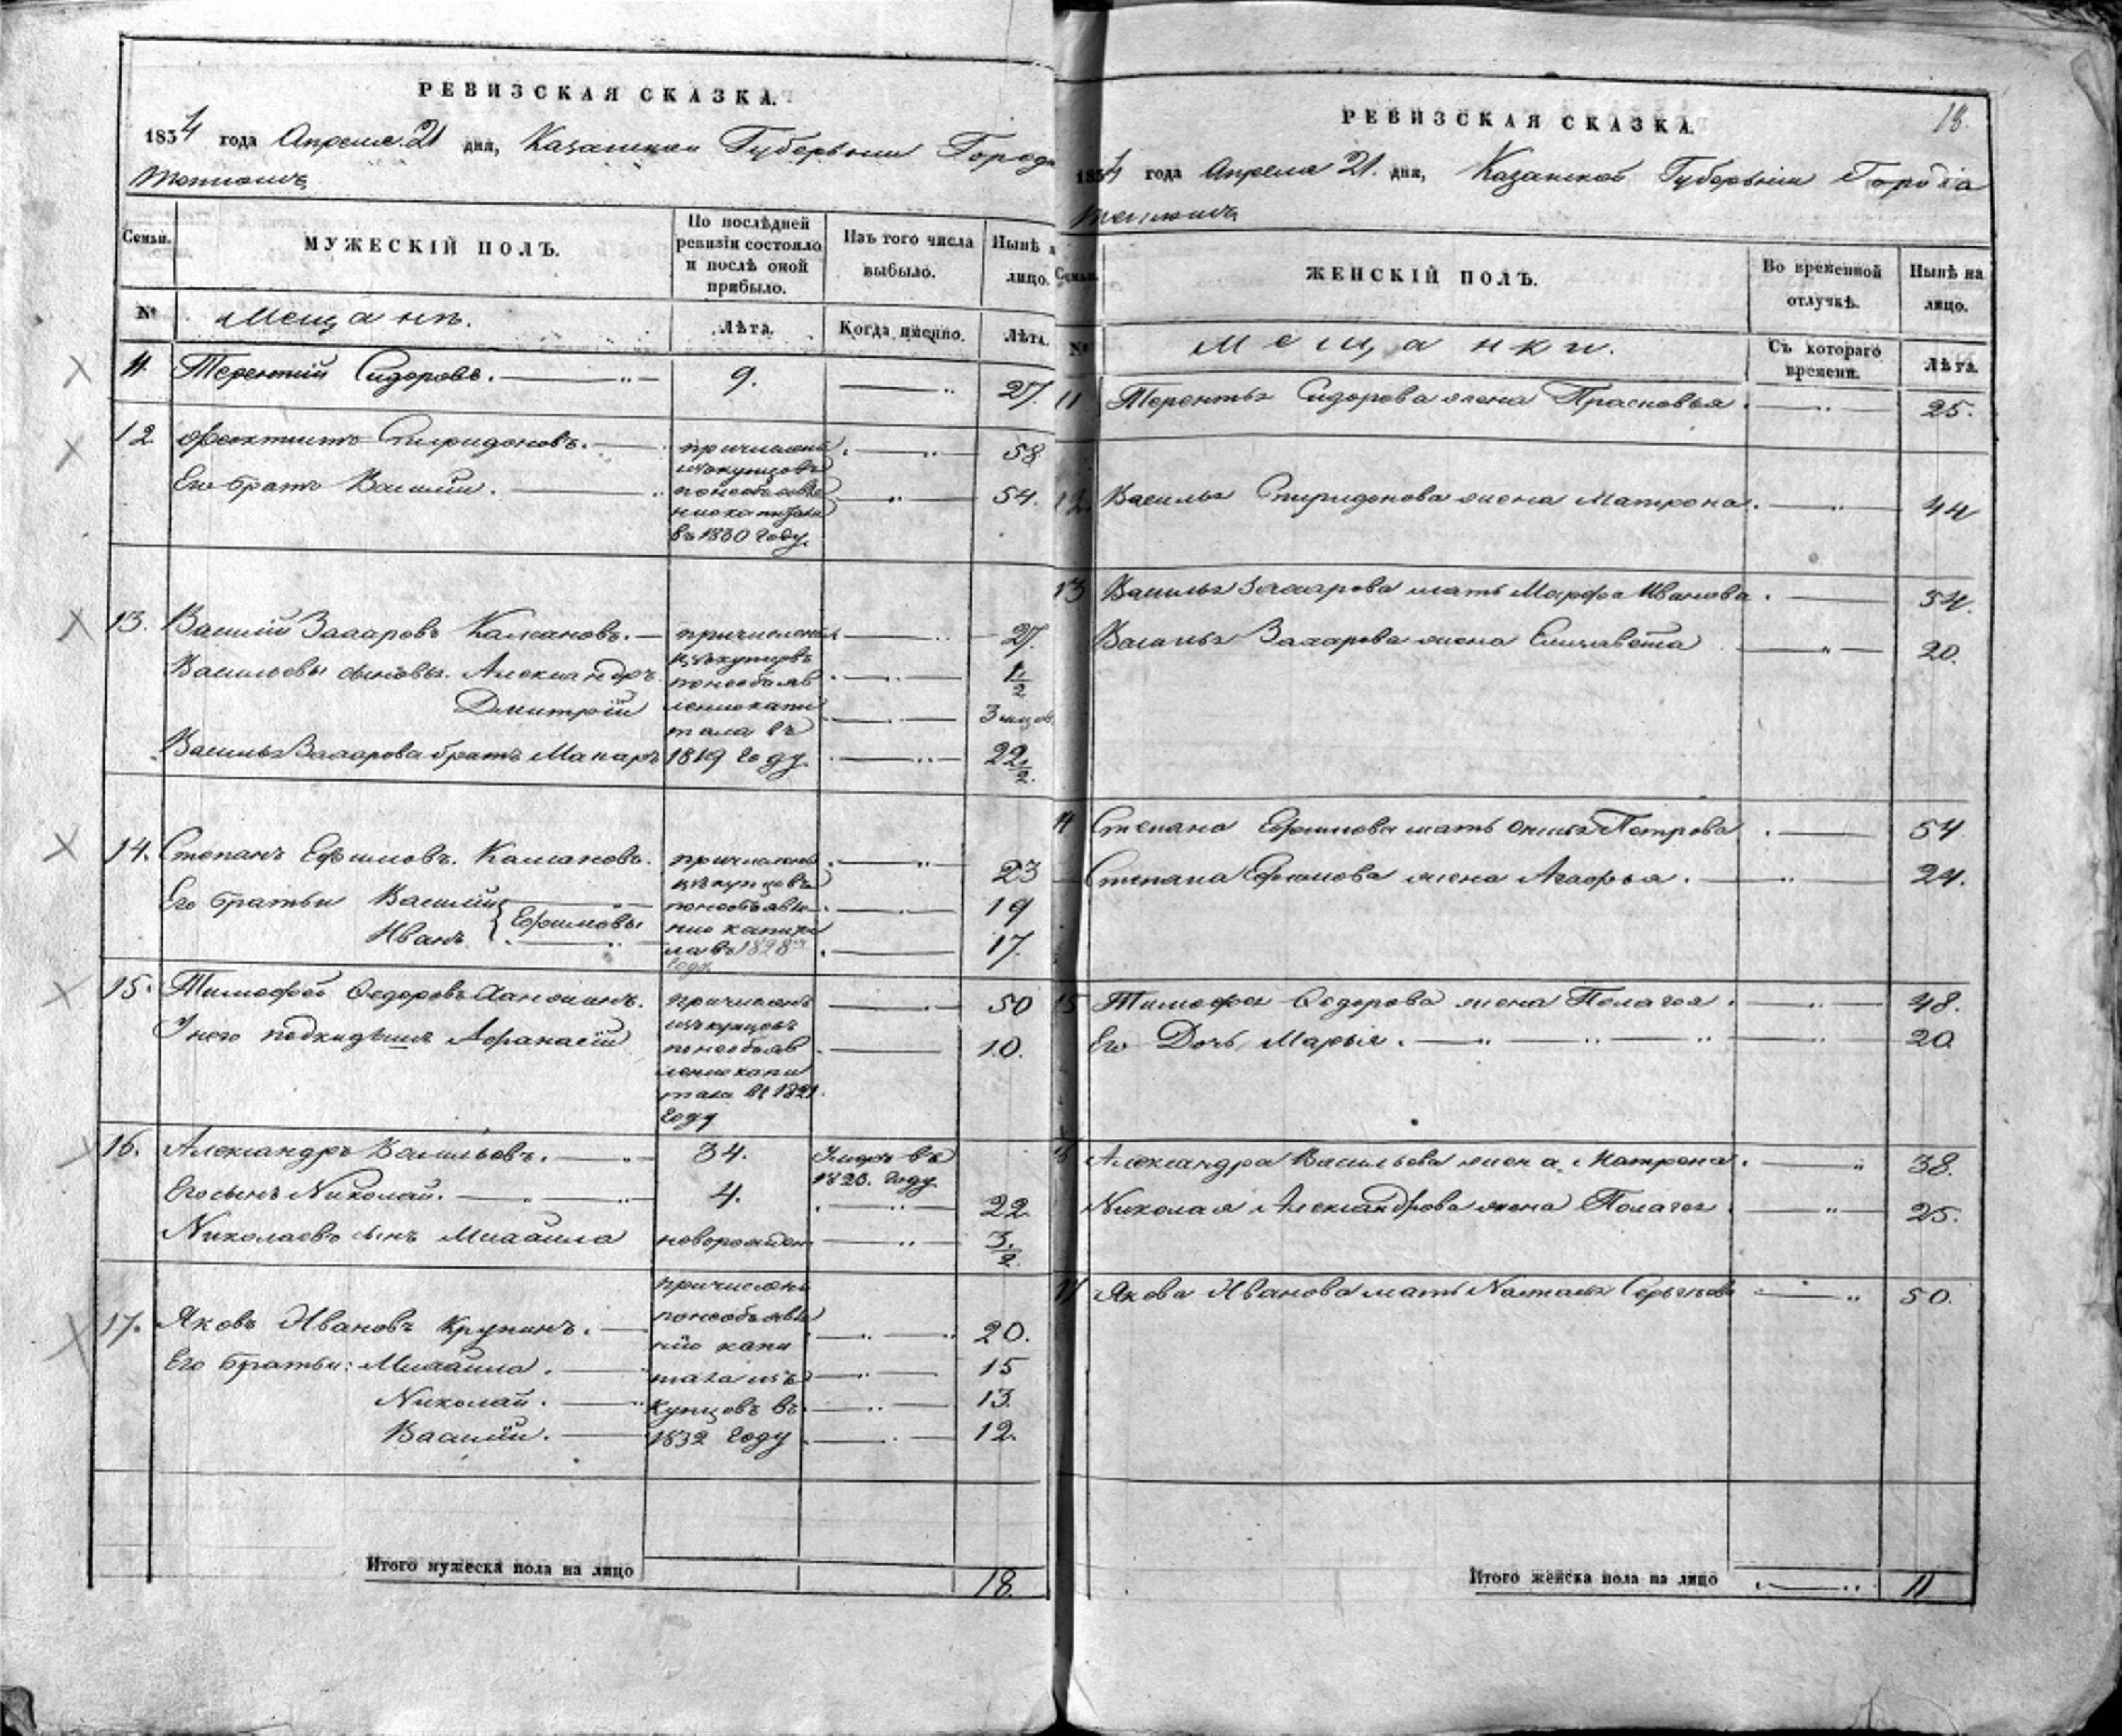 РЕВИЗСКАЯ СКАЗКА.
1834 года Апреля 21 дня, Казанской Губернии Города
Семьи.
МУЖЕСКІЙ ПОЛЪ.
По послѣдней ревизіи состояло и послѣ оной прибыло.
Изъ того числа выбыло.
Нынѣ на лицо.
№
Мещанъ.
Лѣта.
Когда именно.
Лѣта.
11. Терентий Сидоровъ. 9. 27.
12. Феоктистъ Спиридоновъ. причислены 58
изъ купцовъ
Его братъ Василий. по необъявле 54.
нию капитала
въ 1830 году.
13. Василий Захаровъ Калмановъ. причислены 27.
изъ купцовъ
Васильевы сыновья. Александръ по необъяв 1/2
Дмитрій лению капи 3 месцов.
тала въ
Василья Захарова братъ Макаръ 1819 году. 22 1/2.
14. Степанъ Ефимовъ. причислены 23
изъ купцовъ
Его братьи Василий по необъявле 19
Иванъ Ефимовы нию капита 17.
ла въ 1828
году
15. Тимофей Федоровъ причисленъ 50
изъ купцовъ
У него подкидышъ Афанасій по необъяв 10.
лению капи
тала въ 1821
году
16. Александръ Васильевъ. 34. Умеръ въ
1826. году.
Его сынъ Николай. 4. 22.
Николаевъ сынъ Михаила новорожден 3 1/2.
причислены
по необъявле
17. Яковъ Ивановъ Крупинъ. нію капи 20.
Его братьи: Михаила. тала изъ 15
Николай. купцовъ въ 13.
Василии. 1832 году 12.
Итого мужеска пола на лицо 18.
18.
РЕВИЗСКАЯ СКАЗКА
1834 года Апреля 21. дня, Казанской Губерніи Города
Семьи.
ЖЕНСКІЙ ПОЛЪ.
Во временной отлучкѣ.
Нынѣ на лицо.
№
Мещанки.
Съ котораго времени.
Лѣта.
11 Терентья Сидорова жена Прасковья. 25.
12. Василья Спиридонова жена Матрона. 44
13 Василья Захарова мать Марфа Иванова. 54.
Василья Захарова жена Елизавета 20.
14 Степана Ефимова мать Петрова 54
Степана Ефимова жена Агафья. 24.
15 Тимофея Федорова жена Пелагея. 48.
Его Дочь Марья. 20.
16 Александра Васильева жена Матрона. 38.
Николая Александрова жена Пелагея. 25.
17 Якова Иванова мать Наталья Сергеева 50.
Итого женска пола на лицо 11